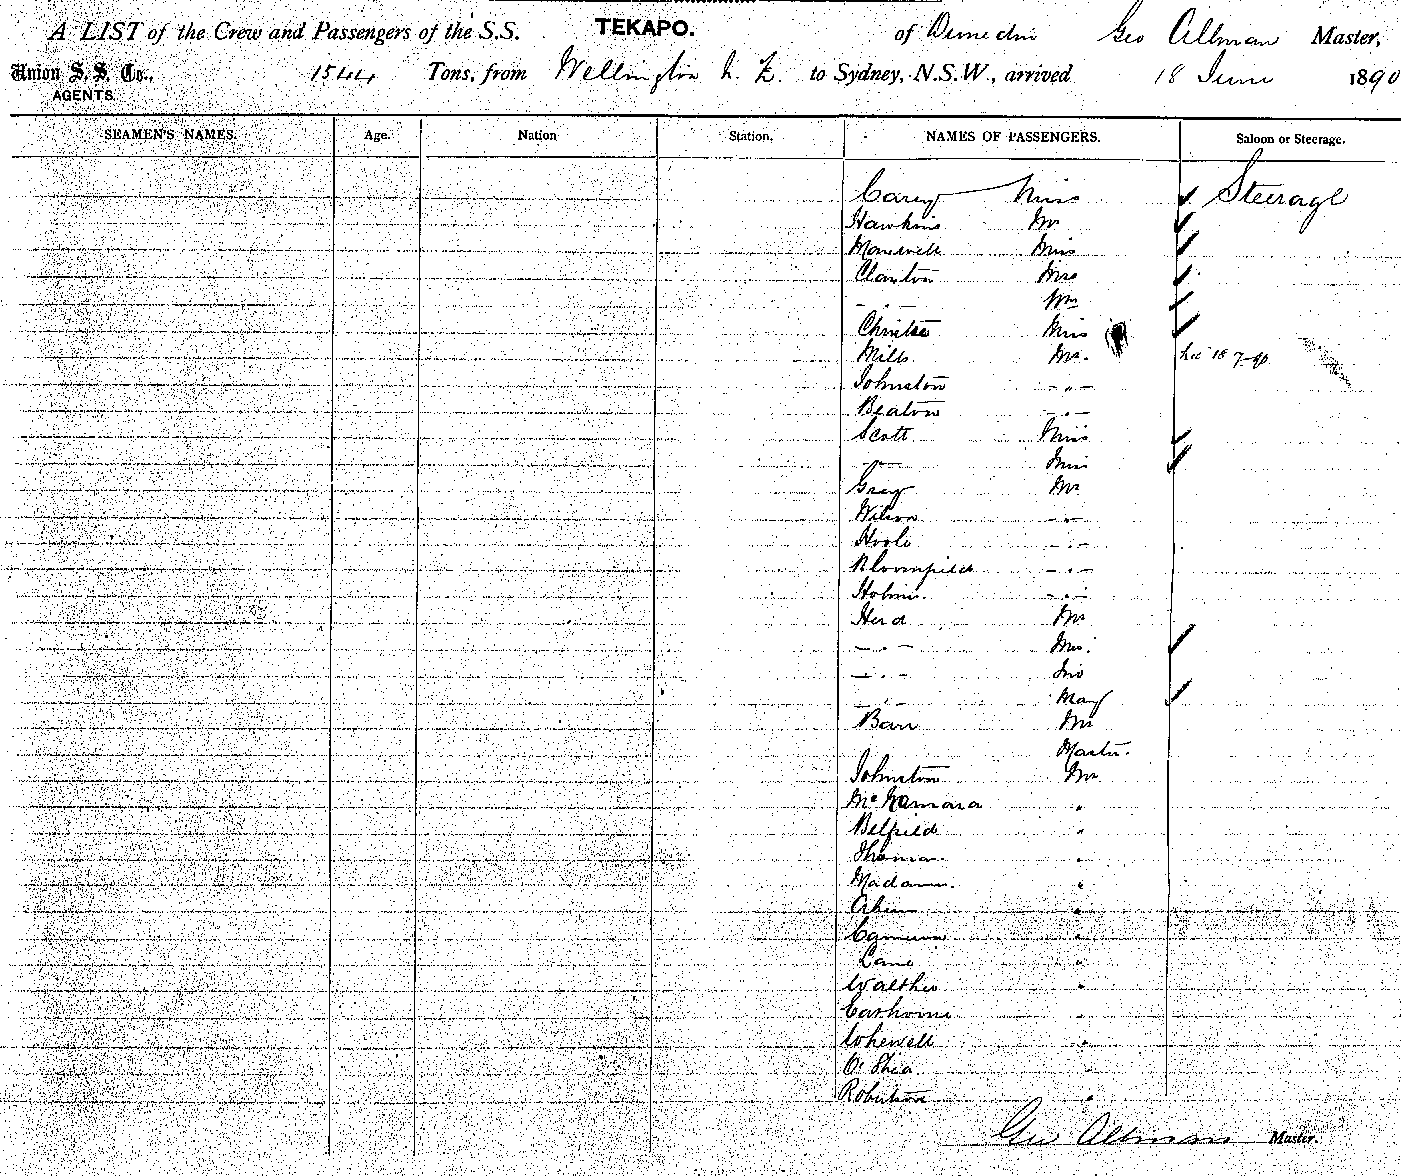 A LIST of the Crew and Passengers of the S.S. TEKAPO. of Dunedin Geo Allman Master,
Union S. S. Co., AGENTS. 1544 Tons, from Wellington N. Z. to Sydney, N.S.W., arrived 18 June 1890
SEAMEN'S NAMES. Age. Nation Station. NAMES OF PASSENGERS. Saloon or Steerage.
Carey Miss ✓ Steerage
Hawkins Mr ✓
Miss ✓
Clanton Mrs ✓
- . - ✓
Christie Miss ✓
Mills Mr.
Johnston - " -
Beaton - . -
Scott Miss ✓
- Miss ✓
Gray Mr
Wilson - . -
Hoole - . -
Bloomfield - . -
- . -
Herd Mr
- . - Mrs. ✓
- . -
- . - May ✓
Barr Mr
Master.
Johnston Mr
McNamara "
Belfield "
Thomas "
"
"
Cameron "
Lane "
"
"
Whewell "
O'Shea
Robertson "
Geo Allman Master.